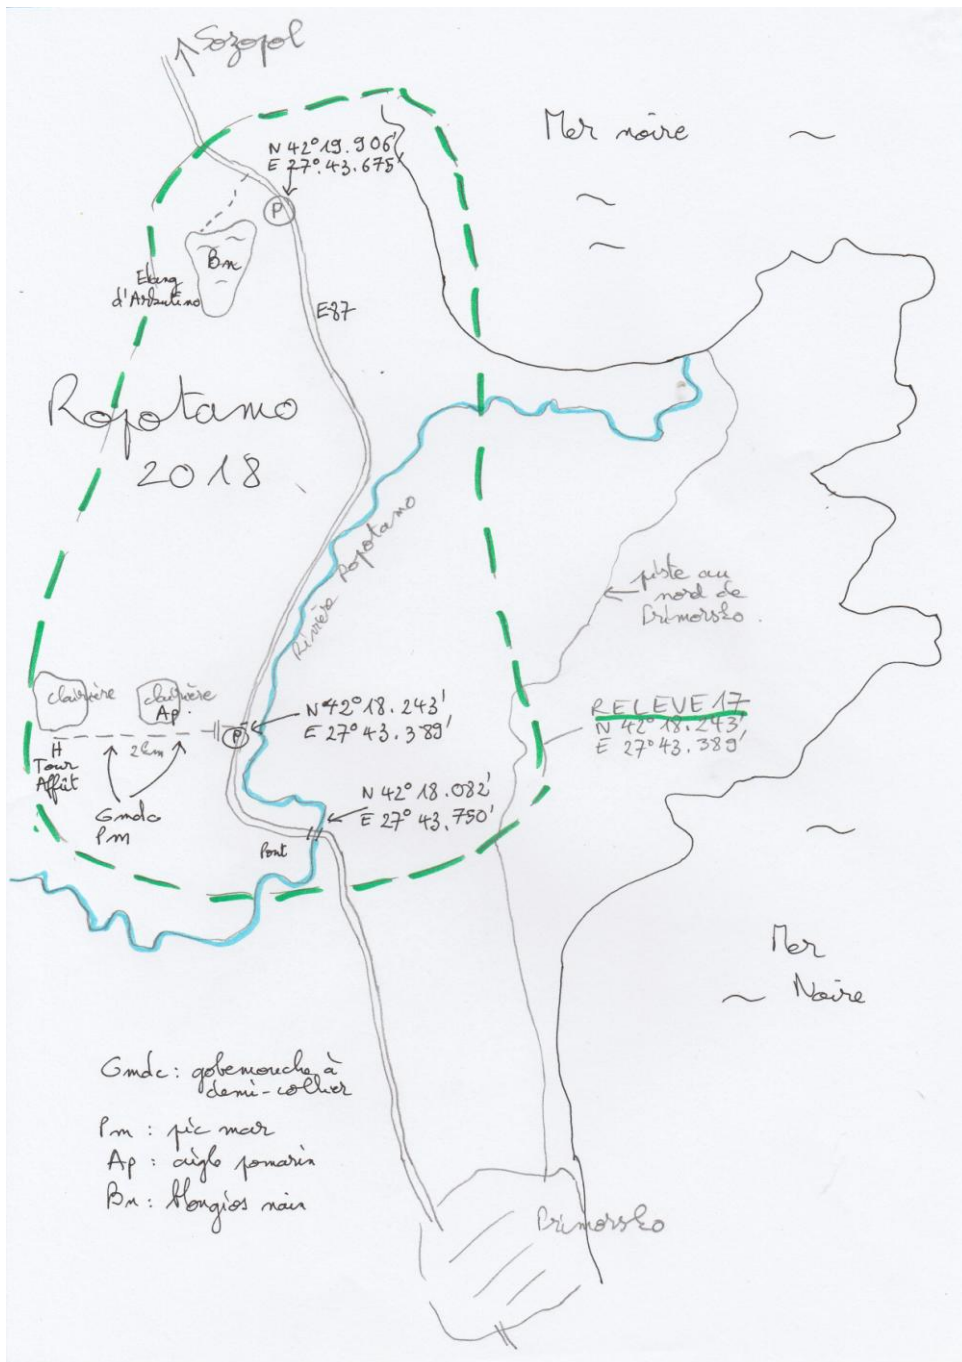 Sozopol
Mer noire
N 42° 19.906'
E 27°.43.675'
P
Bn
Etang
d'Arkutino
E87
Ropotamo
2018
Rivière Ropotamo
piste au
nord de
Primorsko.
clairière
clairière
Ap.
N 42° 18.243'
E 27° 43.389'
P
RELEVE 17
N 42° 18.243'
E 27° 43.389'
H
2km
Tour
Affût
Gmdc
Pm
N 42° 18.082'
E 27° 43.750'
Pont
Mer
Noire
Gmdc : gobemouche à
demi-collier
Pm : pic mar
Ap : aigle pomarin
Bn : blongios nain
Primorsko